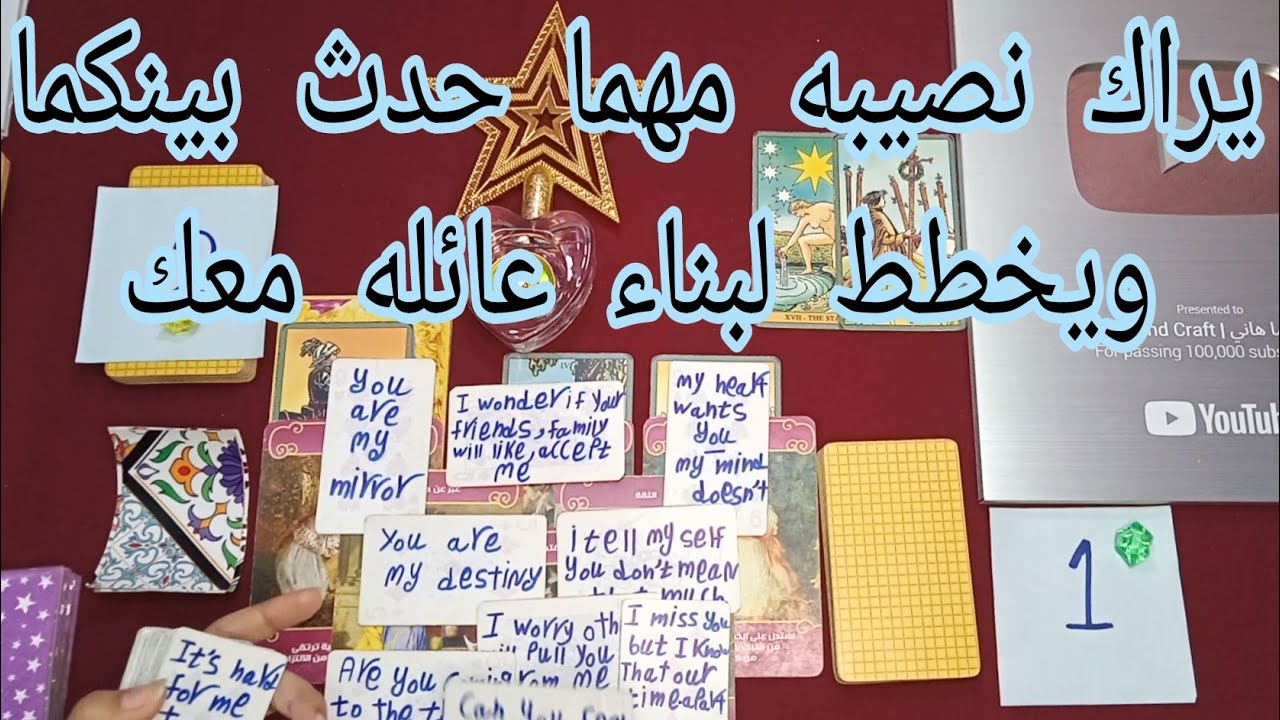 يراك نصيبه مهما حدث بينكما
ويخطط لبناء عائله معك
XVII - THE STA
IV
Presented to
nd Craft | ا هاني
For passing 100,000 subs
YouTub
1
You
are
my
mirror
I wonder if your
friends, family
will like, accept
me
my heart
wants
you
my mind
doesn't
You are
my destiny
i tell my self
You don't mean
I worry oth
pull you
from me
I miss you
but I Know
That our
time-apart
It's hard
for me
Are you
to the t
11
الثقة